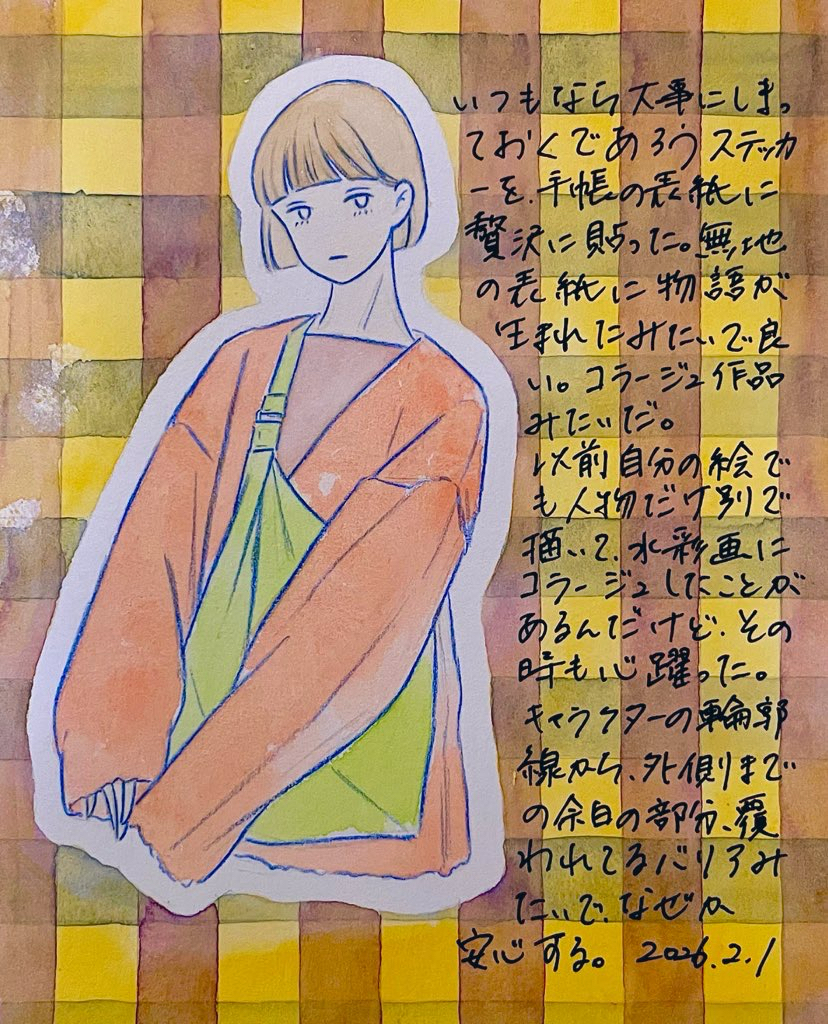 いつもなら大事にしま。
ておくであろうステッカ
ーを、手帳の表紙に
贅沢に貼った。無地
の表紙に物語が
生まれたみたいで良
い。コラージュ作品
みたいだ。
以前自分の絵で
も人物だけ別で
描いて、水彩画に
コラージュしたことが
あるんだけど、その
時も心躍った。
キャラクターの輪郭
線から、外側まで
の余白の部分、覆
われてるバリアみ
たいで、なぜか
安心する。 2026.2.1